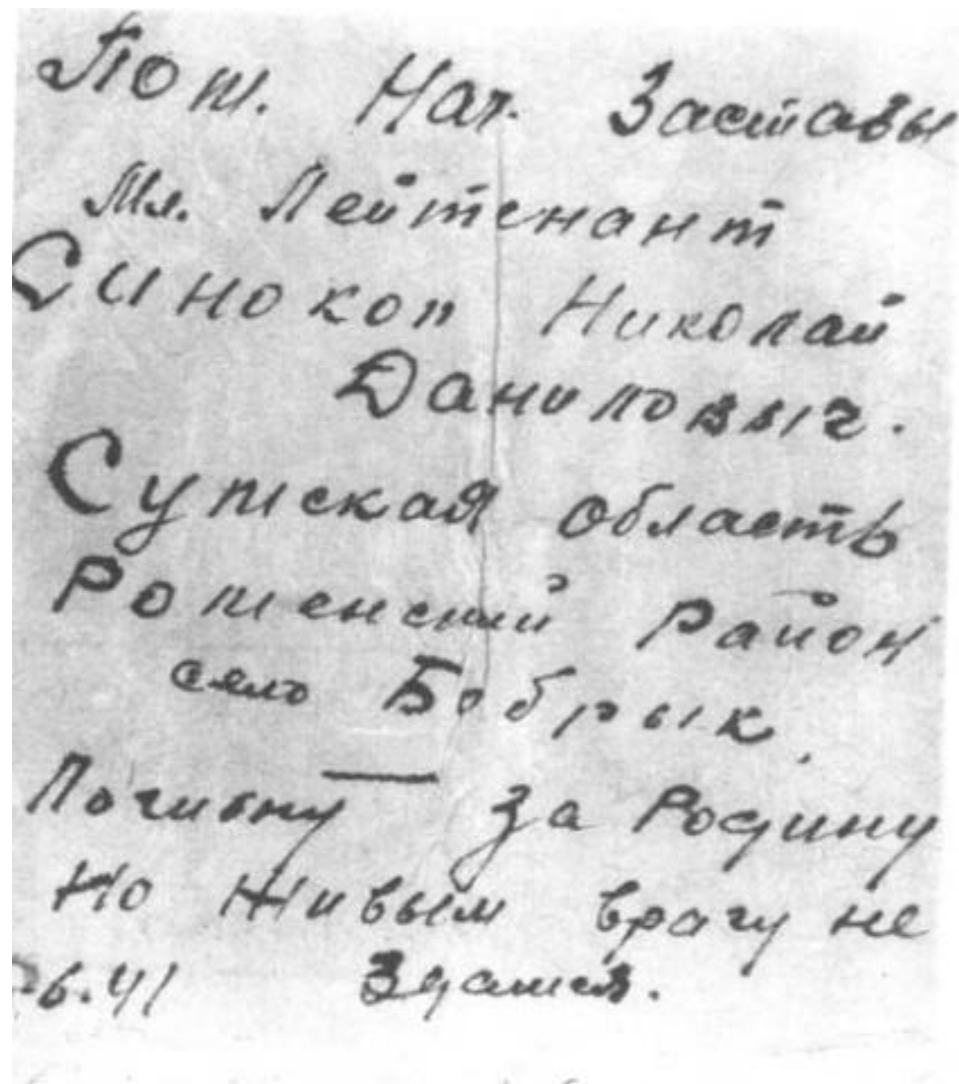 Пом. Нач. Заставы
Мл. Лейтенант
Синокоп Николай
Даниловыч.
Сумская область
Роменский Район
село Бобрык.
Погибну за Родину
Но живым врагу не
6.41 Здамся.